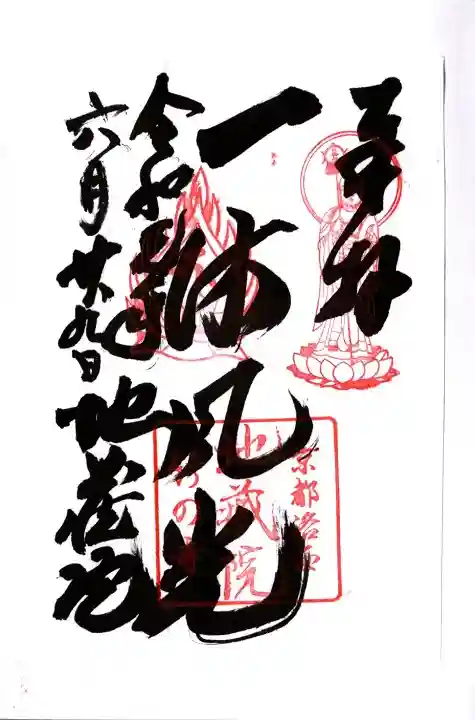 奉拝
一 風光
令和 年
六月廿九日
地蔵院
京都洛西
地蔵院
の